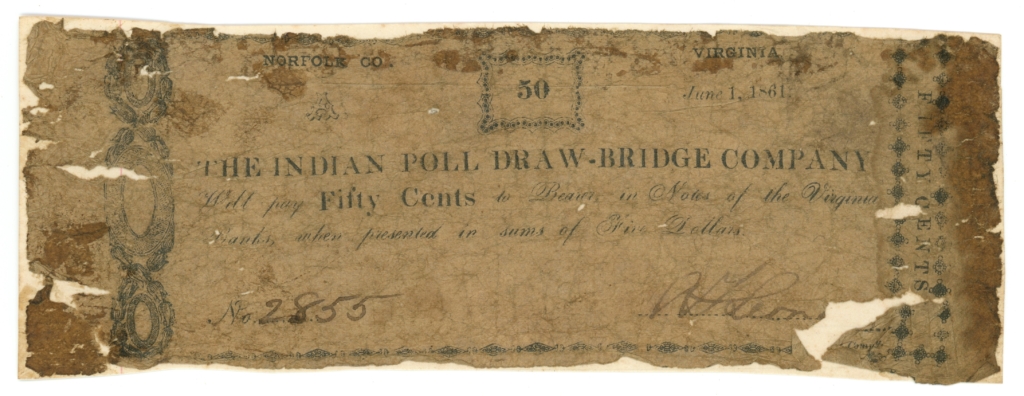 NORFOLK CO.
VIRGINIA
50
June 1, 1861.
THE INDIAN POLL DRAW-BRIDGE COMPANY
Will pay Fifty Cents to Bearer, in Notes of the Virginia
Banks, when presented in sums of Five Dollars.
No. 2855
FIFTY CENTS